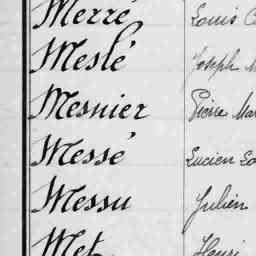 Merré Louis
Meslé Joseph
Mesnier Pierre Mar
Messé Lucien
Messu Julien
Met Henri